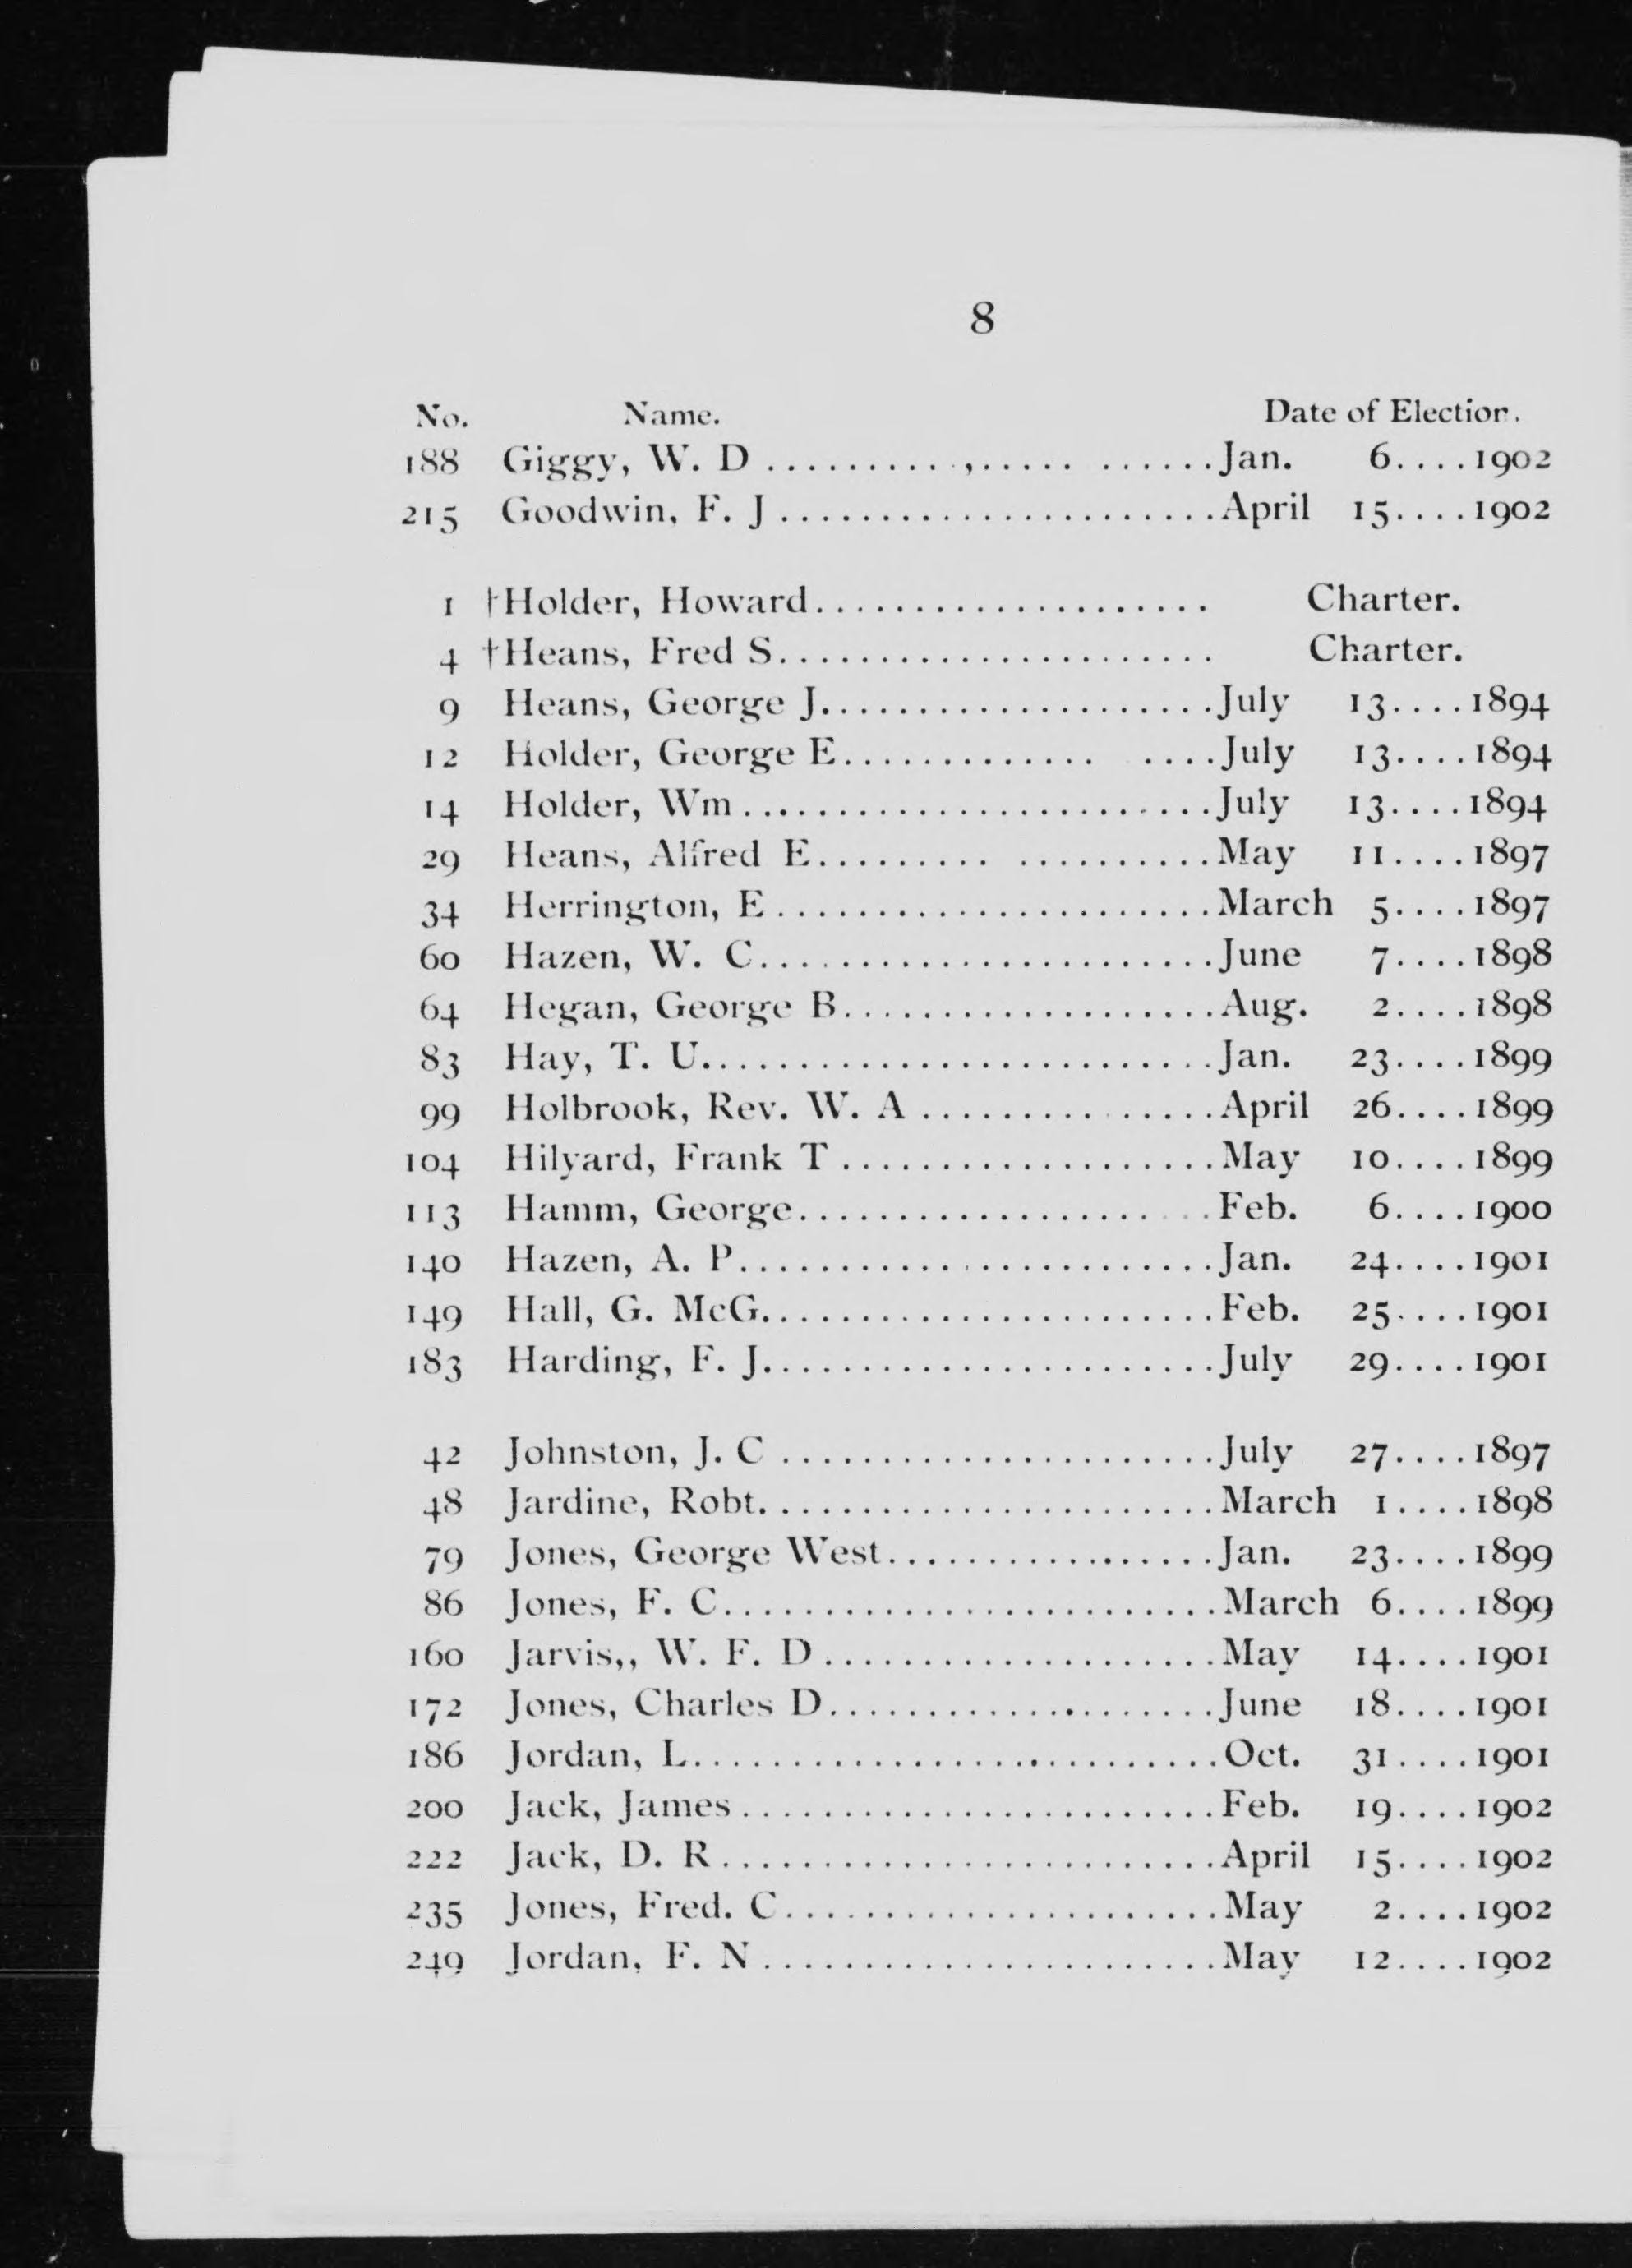 8
No. Name. Date of Election.
188 Giggy, W. D ..........,..... ......Jan. 6....1902
215 Goodwin, F. J ......................April 15....1902
1 †Holder, Howard.................... Charter.
4 †Heans, Fred S...................... Charter.
9 Heans, George J....................July 13....1894
12 Holder, George E............. ....July 13....1894
14 Holder, Wm........................July 13....1894
29 Heans, Alfred E......... ..........May 11....1897
34 Herrington, E......................March 5....1897
60 Hazen, W. C.......................June 7....1898
64 Hegan, George B...................Aug. 2....1898
83 Hay, T. U..........................Jan. 23....1899
99 Holbrook, Rev. W. A ...............April 26....1899
104 Hilyard, Frank T...................May 10....1899
113 Hamm, George.....................Feb. 6....1900
140 Hazen, A. P........................Jan. 24....1901
149 Hall, G. McG.......................Feb. 25....1901
183 Harding, F. J.......................July 29....1901
42 Johnston, J. C ......................July 27....1897
48 Jardine, Robt.......................March 1....1898
79 Jones, George West.................Jan. 23....1899
86 Jones, F. C.........................March 6....1899
160 Jarvis,, W. F. D....................May 14....1901
172 Jones, Charles D....................June 18....1901
186 Jordan, L...........................Oct. 31....1901
200 Jack, James........................Feb. 19....1902
222 Jack, D. R.........................April 15....1902
235 Jones, Fred. C......................May 2....1902
249 Jordan, F. N.......................May 12....1902